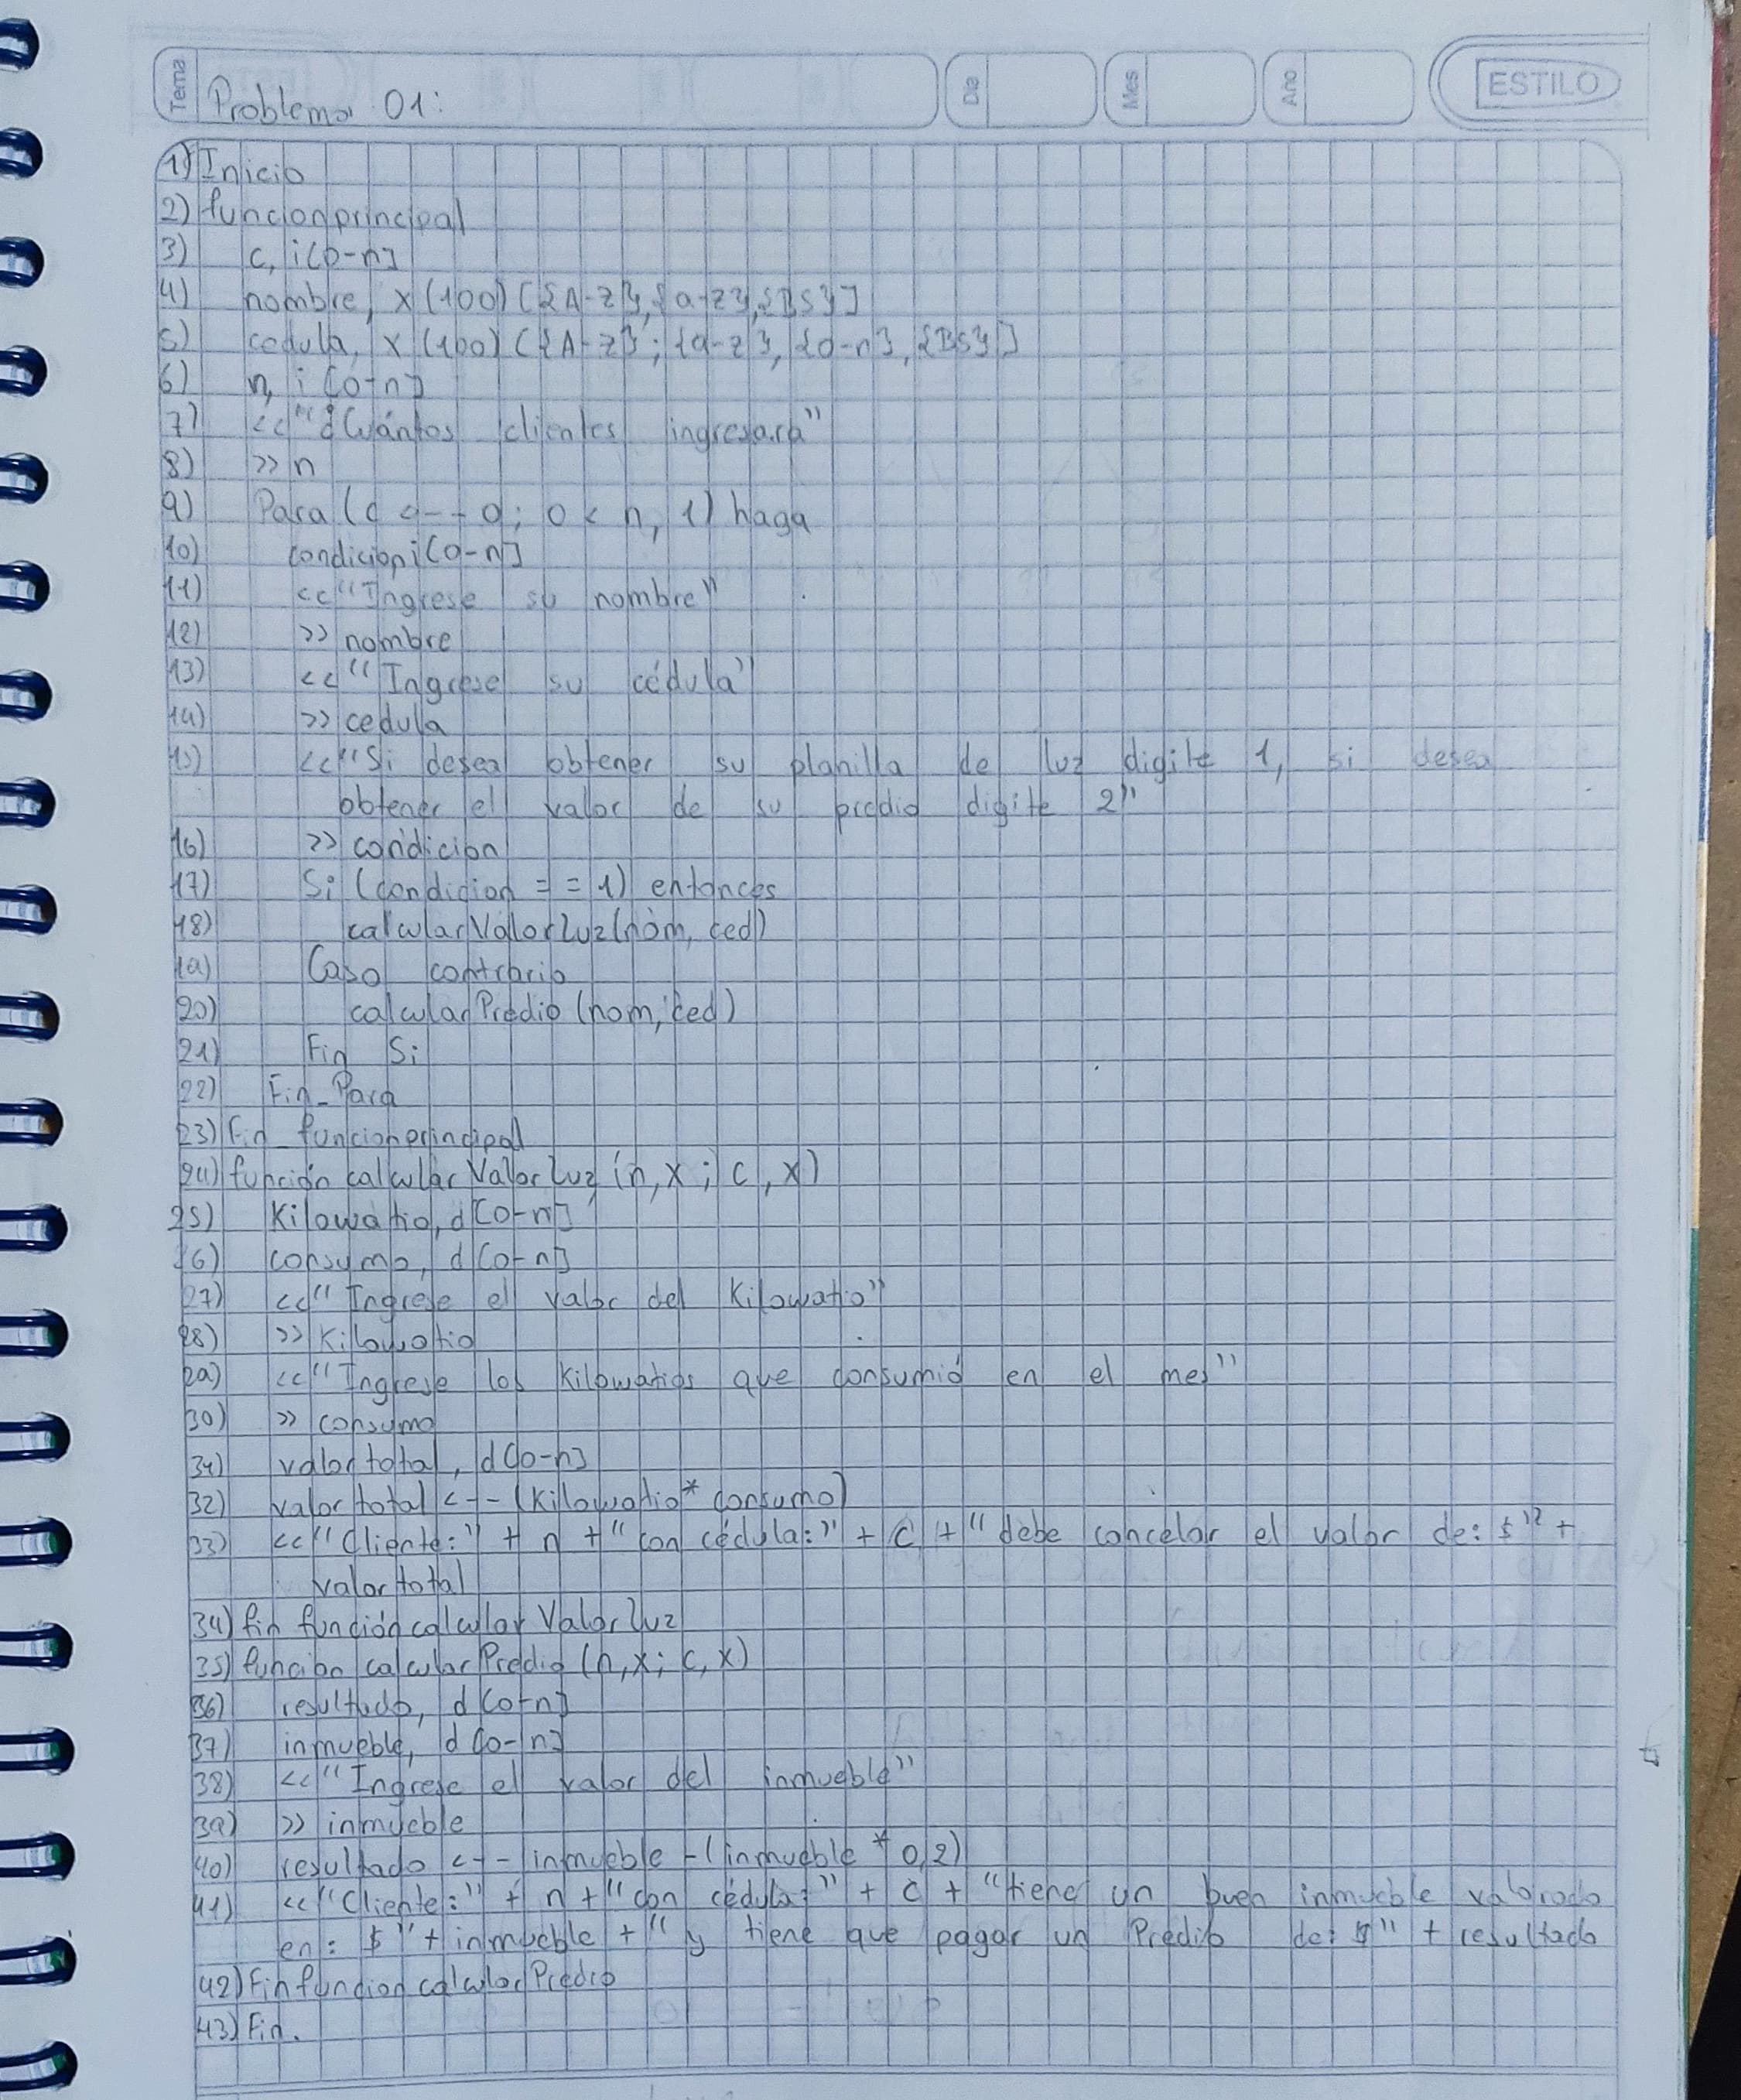 Tema
Problema 01:
Dia
Mes
Año
ESTILO
1) Inicio
2) funcionprincipal
3) c, i[0-n]
4) nombre, x(100)[{A-Z}, {a-z}, {BS}]
5) cedula, x(100)[{A-Z}; {a-z}, {0-n}, {BS}]
6) n, i[0-n]
7) <<"¿Cuántos clientes ingresara"
8) >>n
9) Para (c <-- 0; 0 < n, 1) haga
10) condicion i[0-n]
11) <<"Ingrese su nombre"
12) >> nombre
13) <<"Ingrese su cédula"
14) >> cedula
15) <<"Si desea obtener su planilla de luz digite 1, si desea
obtener el valor de su predio digite 2"
16) >> condicion
17) Si (condicion == 1) entonces
18) calcularValorluz(nom, ced)
19) Caso contrario
20) calcularPredio (nom, ced)
21) Fin Si
22) Fin_Para
23) Fin_funcionprincipal
24) función calcularValorluz (n,x; c,x)
25) Kilowatio, d[0-n]
26) consumo, d[0-n]
27) <<"Ingrese el valor del Kilowatio"
28) >> Kilowatio
29) <<"Ingrese los Kilowatios que consumió en el mes"
30) >> consumo
31) valortotal, d[0-n]
32) valortotal <-- (Kilowatio * consumo)
33) <<"Cliente:" + n + "con cédula:" + c + "debe cancelar el valor de: $" +
valortotal
34) fin función calcularValorluz
35) funcion calcularPredio (n,x; c,x)
36) resultado, d[0-n]
37) inmueble, d[0-n]
38) <<"Ingrese el valor del inmueble"
39) >> inmueble
40) resultado <-- inmueble - (inmueble * 0,2)
41) <<"Cliente:" + n + "con cédula:" + c + "tiene un buen inmueble valorado
en: $" + inmueble + "y tiene que pagar un Predio de: $" + resultado
42) Finfuncion calcularPredio
43) Fin.